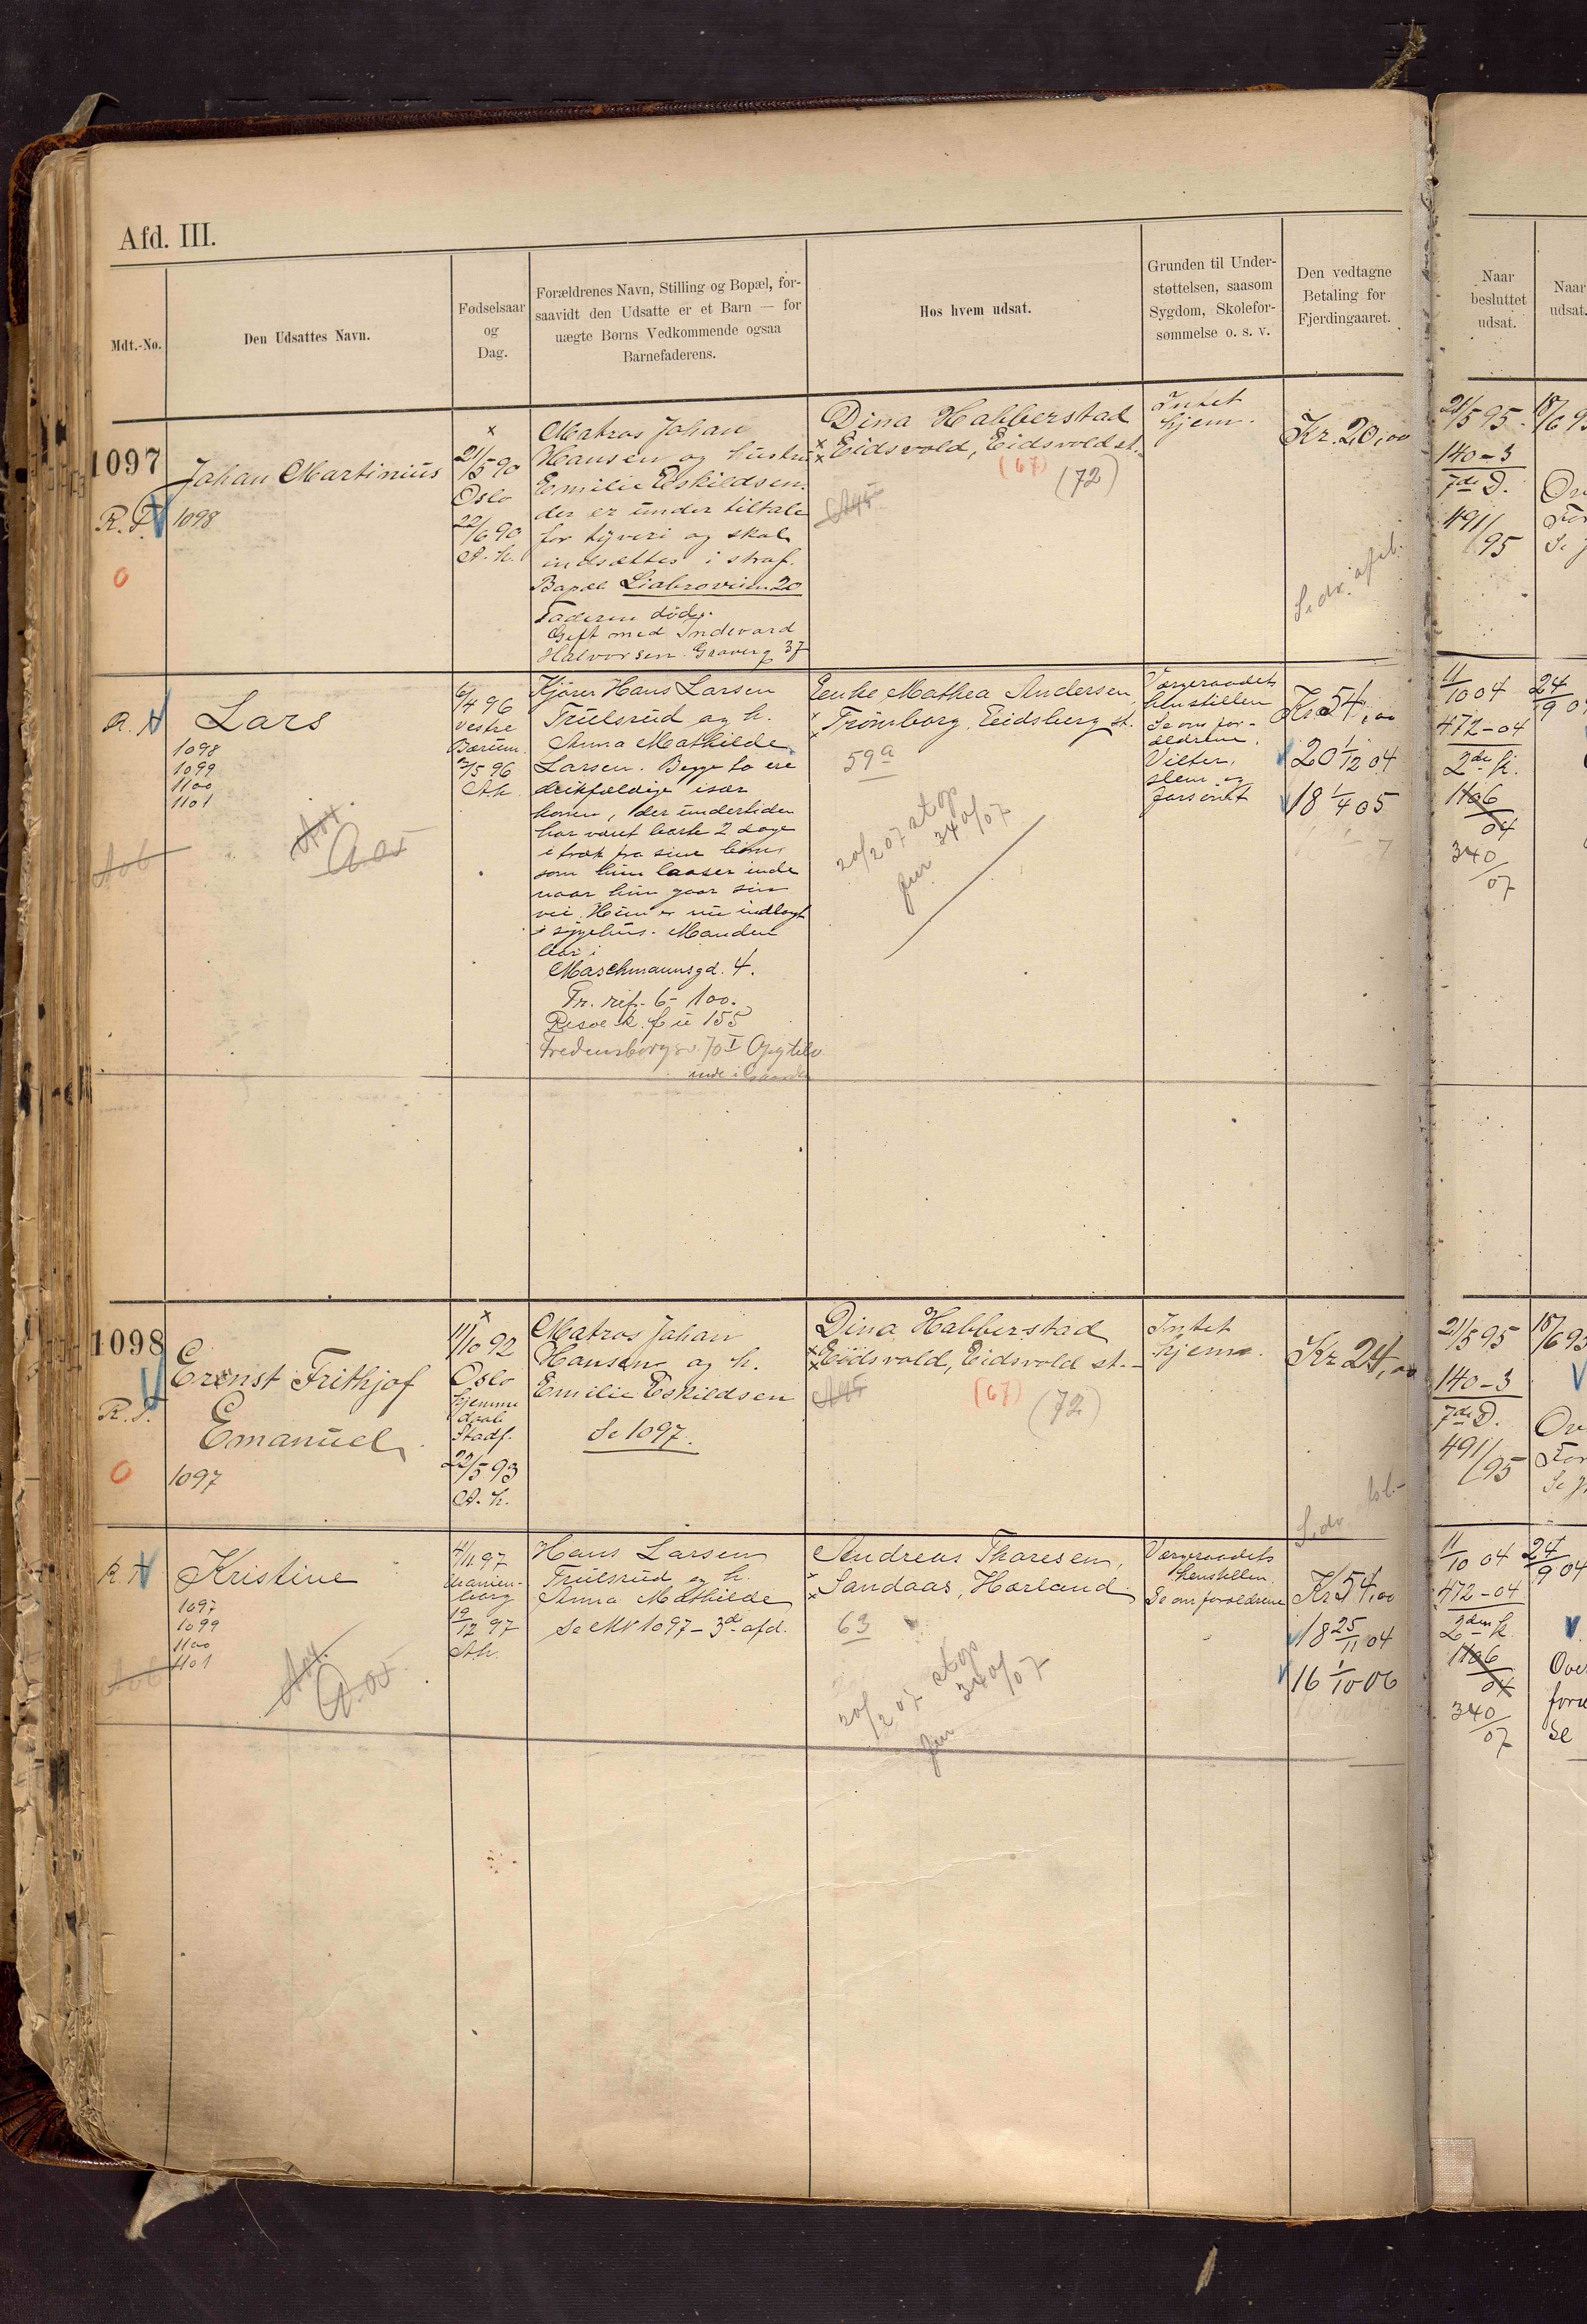 Afd. III.
Mdt.-No.
Den Udsattes Navn.
Fødselsaar
og
Dag.
Forældrenes Navn, Stilling og Bopæl, for-
saavidt den Udsatte er et Barn — for
uægte Børns Vedkommende ogsaa
Barnefaderens.
Hos hvem udsat.
Grunden til Under-
støttelsen, saasom
Sygdom, Skolefor-
sømmelse o. s. v.
Den vedtagne
Betaling for
Fjerdingaaret.
Naar
besluttet
udsat.
Naar
udsat.
1097
R. F.
0
Johan Martinius
1098
x
21/5 90
Oslo
22/6 90
A. k.
Matros Johan
Hansen og hustru
Emilie Eskildsen
der er under tiltale
for tyveri og skal
indsættes i straf.
Bopæl Liabroveien 20
Faderen død.
Gift med Indevard
Halvorsen Graverg 37
Dina Habberstad
x Eidsvold, Eidsvold st.
x
(67)
(72)
Intet
hjem.
Kr. 20,00
21/5 95.
140-3
7de D.
491/95
18/6 95
R.
Lars
1098
1099
1100
1101
6/4 96
Vestre
Bærum
2/5 96
A.k.
Kjører Hans Larsen
Trulsrud og h.
Anna Mathilde
Larsen. Begge to ere
drikfældige især
konen, der undertiden
har været borte 2 dage
i træk fra sine børn
som hun laaser inde
naar hun gaar sin
vei. Hun er nu indlagt
i sygehus. Manden
bor i
Maschmannsgd. 4.
Fr. rif. 6- 100.
155
Fredensborgsv. 70 I
inde i Gaarden
Enke Mathea Andersen,
x Trømborg, Eidsberg st.
x
59a
20/2 07 stop
340/07
Værgeraadets
henstillen
Se om for-
ældrene.
Vilter,
slem og
forsømt
Kr. 54,00
20 1/12 04
18 1/4 05
11/10 04
472-04
2den k.
1106/04
340/07
24/9 04
1098
R. F.
0
Ernst Frithjof
Emanuel
1097
x
11/10 92
Oslo
hjemme
døbt
Stadf.
22/5 93
A. k.
Matros Johan
Hansen og h.
Emilie Eskildsen
Se 1097.
Dina Habberstad
x Eidsvold, Eidsvold st.
x
(67)
(72)
Intet
hjem.
Kr 24,00
21/5 95
140-3
7de D.
491/95
18/6 95
R.
Kristine
1097
1099
1100
1101
4/11 97
19/12 97
A.k.
Hans Larsen
Trulsrud og h.
Anna Mathilde
Se No 1097 - 3de afd.
Andreas Thoresen,
x Sandaas, Hærland.
x
63
20/2 07 stop
340/07
Værgeraadets
henstillen.
Se om forældrene
Kr 54,00
18 25/11 04
16 1/10 06
11/10 04
472-04
2den k.
1106/04
340/07
24/9 04
Se